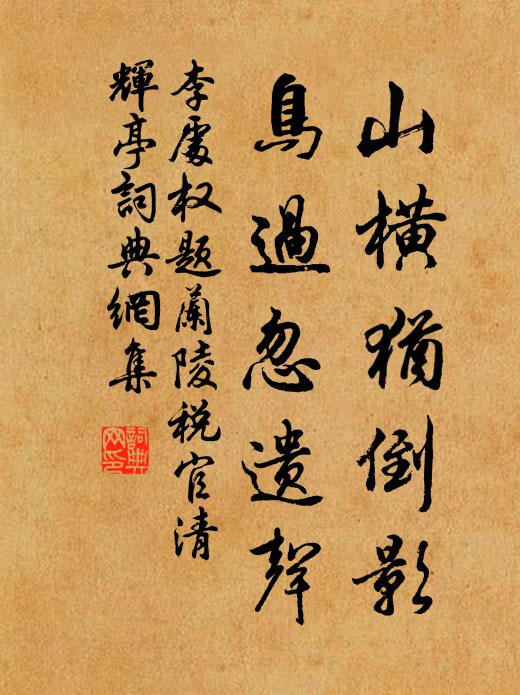 山橫猶倒影
鳥過忽遺聲
李處权題蘭陵税官清
輝亭詞典網集
詞典
网印